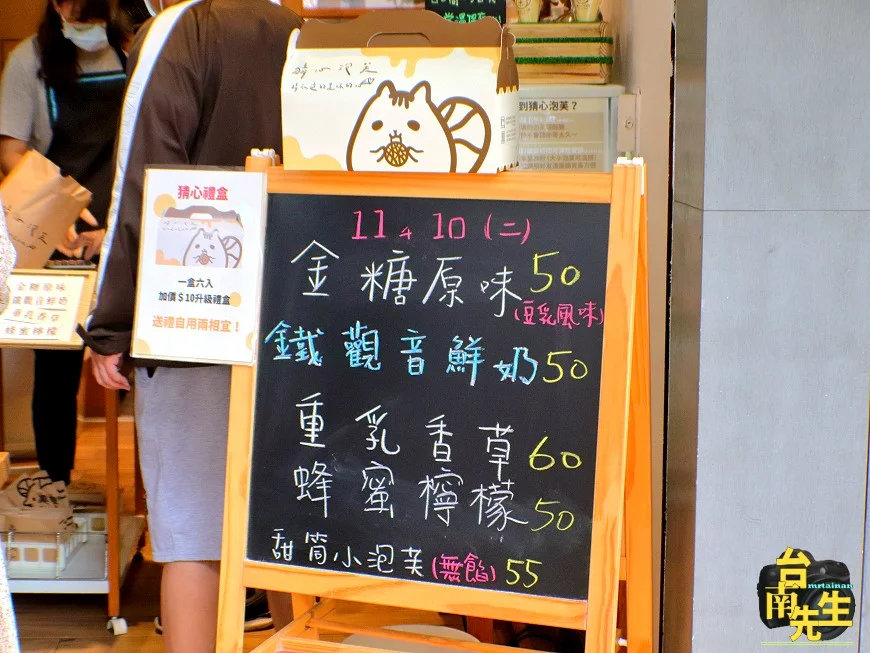 猜心禮盒
一盒六入
加價$10升級禮盒
送禮自用兩相宜！
11 4 10 (二)
金糖原味 50
(豆乳風味)
鐵觀音鮮奶 50
重乳香草 60
蜂蜜檸檬 50
甜筒小泡芙(無餡) 55
到猜心泡芙？
金糖原味
鐵觀音鮮奶
蜂蜜檸檬
台南先生
mrtainan